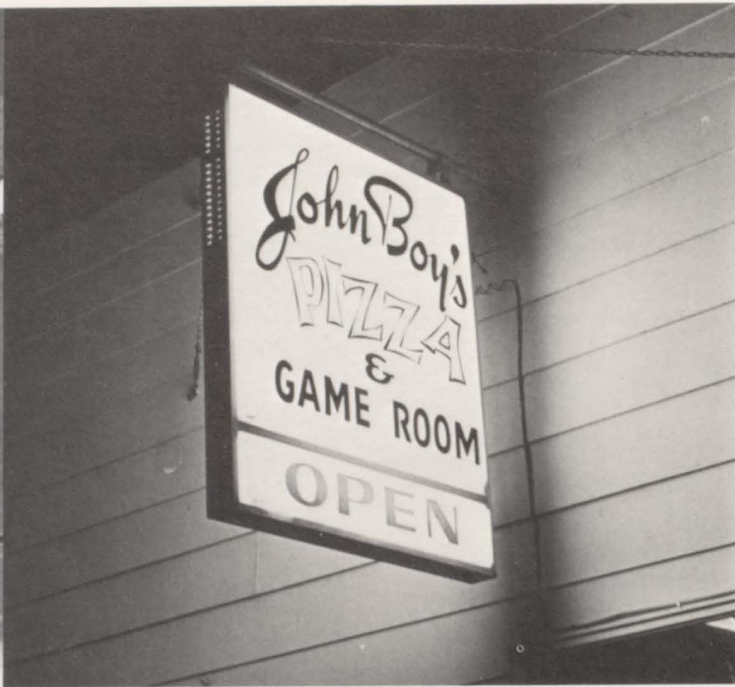 John Boy's
PIZZA
&
GAME ROOM
OPEN